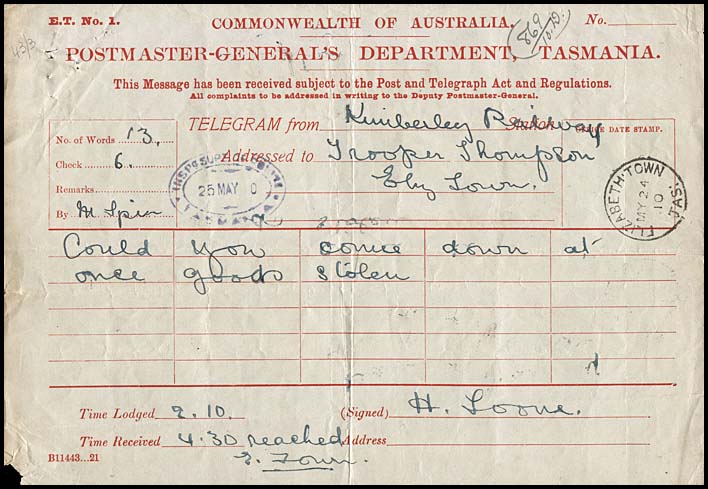 E.T. No. 1.
COMMONWEALTH OF AUSTRALIA.
No.
869
10.10.
43/3
POSTMASTER-GENERAL'S DEPARTMENT, TASMANIA.
This Message has been received subject to the Post and Telegraph Act and Regulations.
All complaints to be addressed in writing to the Deputy Postmaster-General.
TELEGRAM from Kimberley Railway Station
OFFICE DATE STAMP.
No. of Words 13.
Addressed to Trooper Thompson
Check 6.
Eliz Town.
Remarks
By M
25 MAY 0
TASMANIA
ELIZABETH TOWN
MY 24
10
TAS.
Could you come down at
once goods stolen
Time Lodged 2.10.
(Signed) H. Loone.
Time Received 4.30 reached
Address
E. Town.
B11443...21